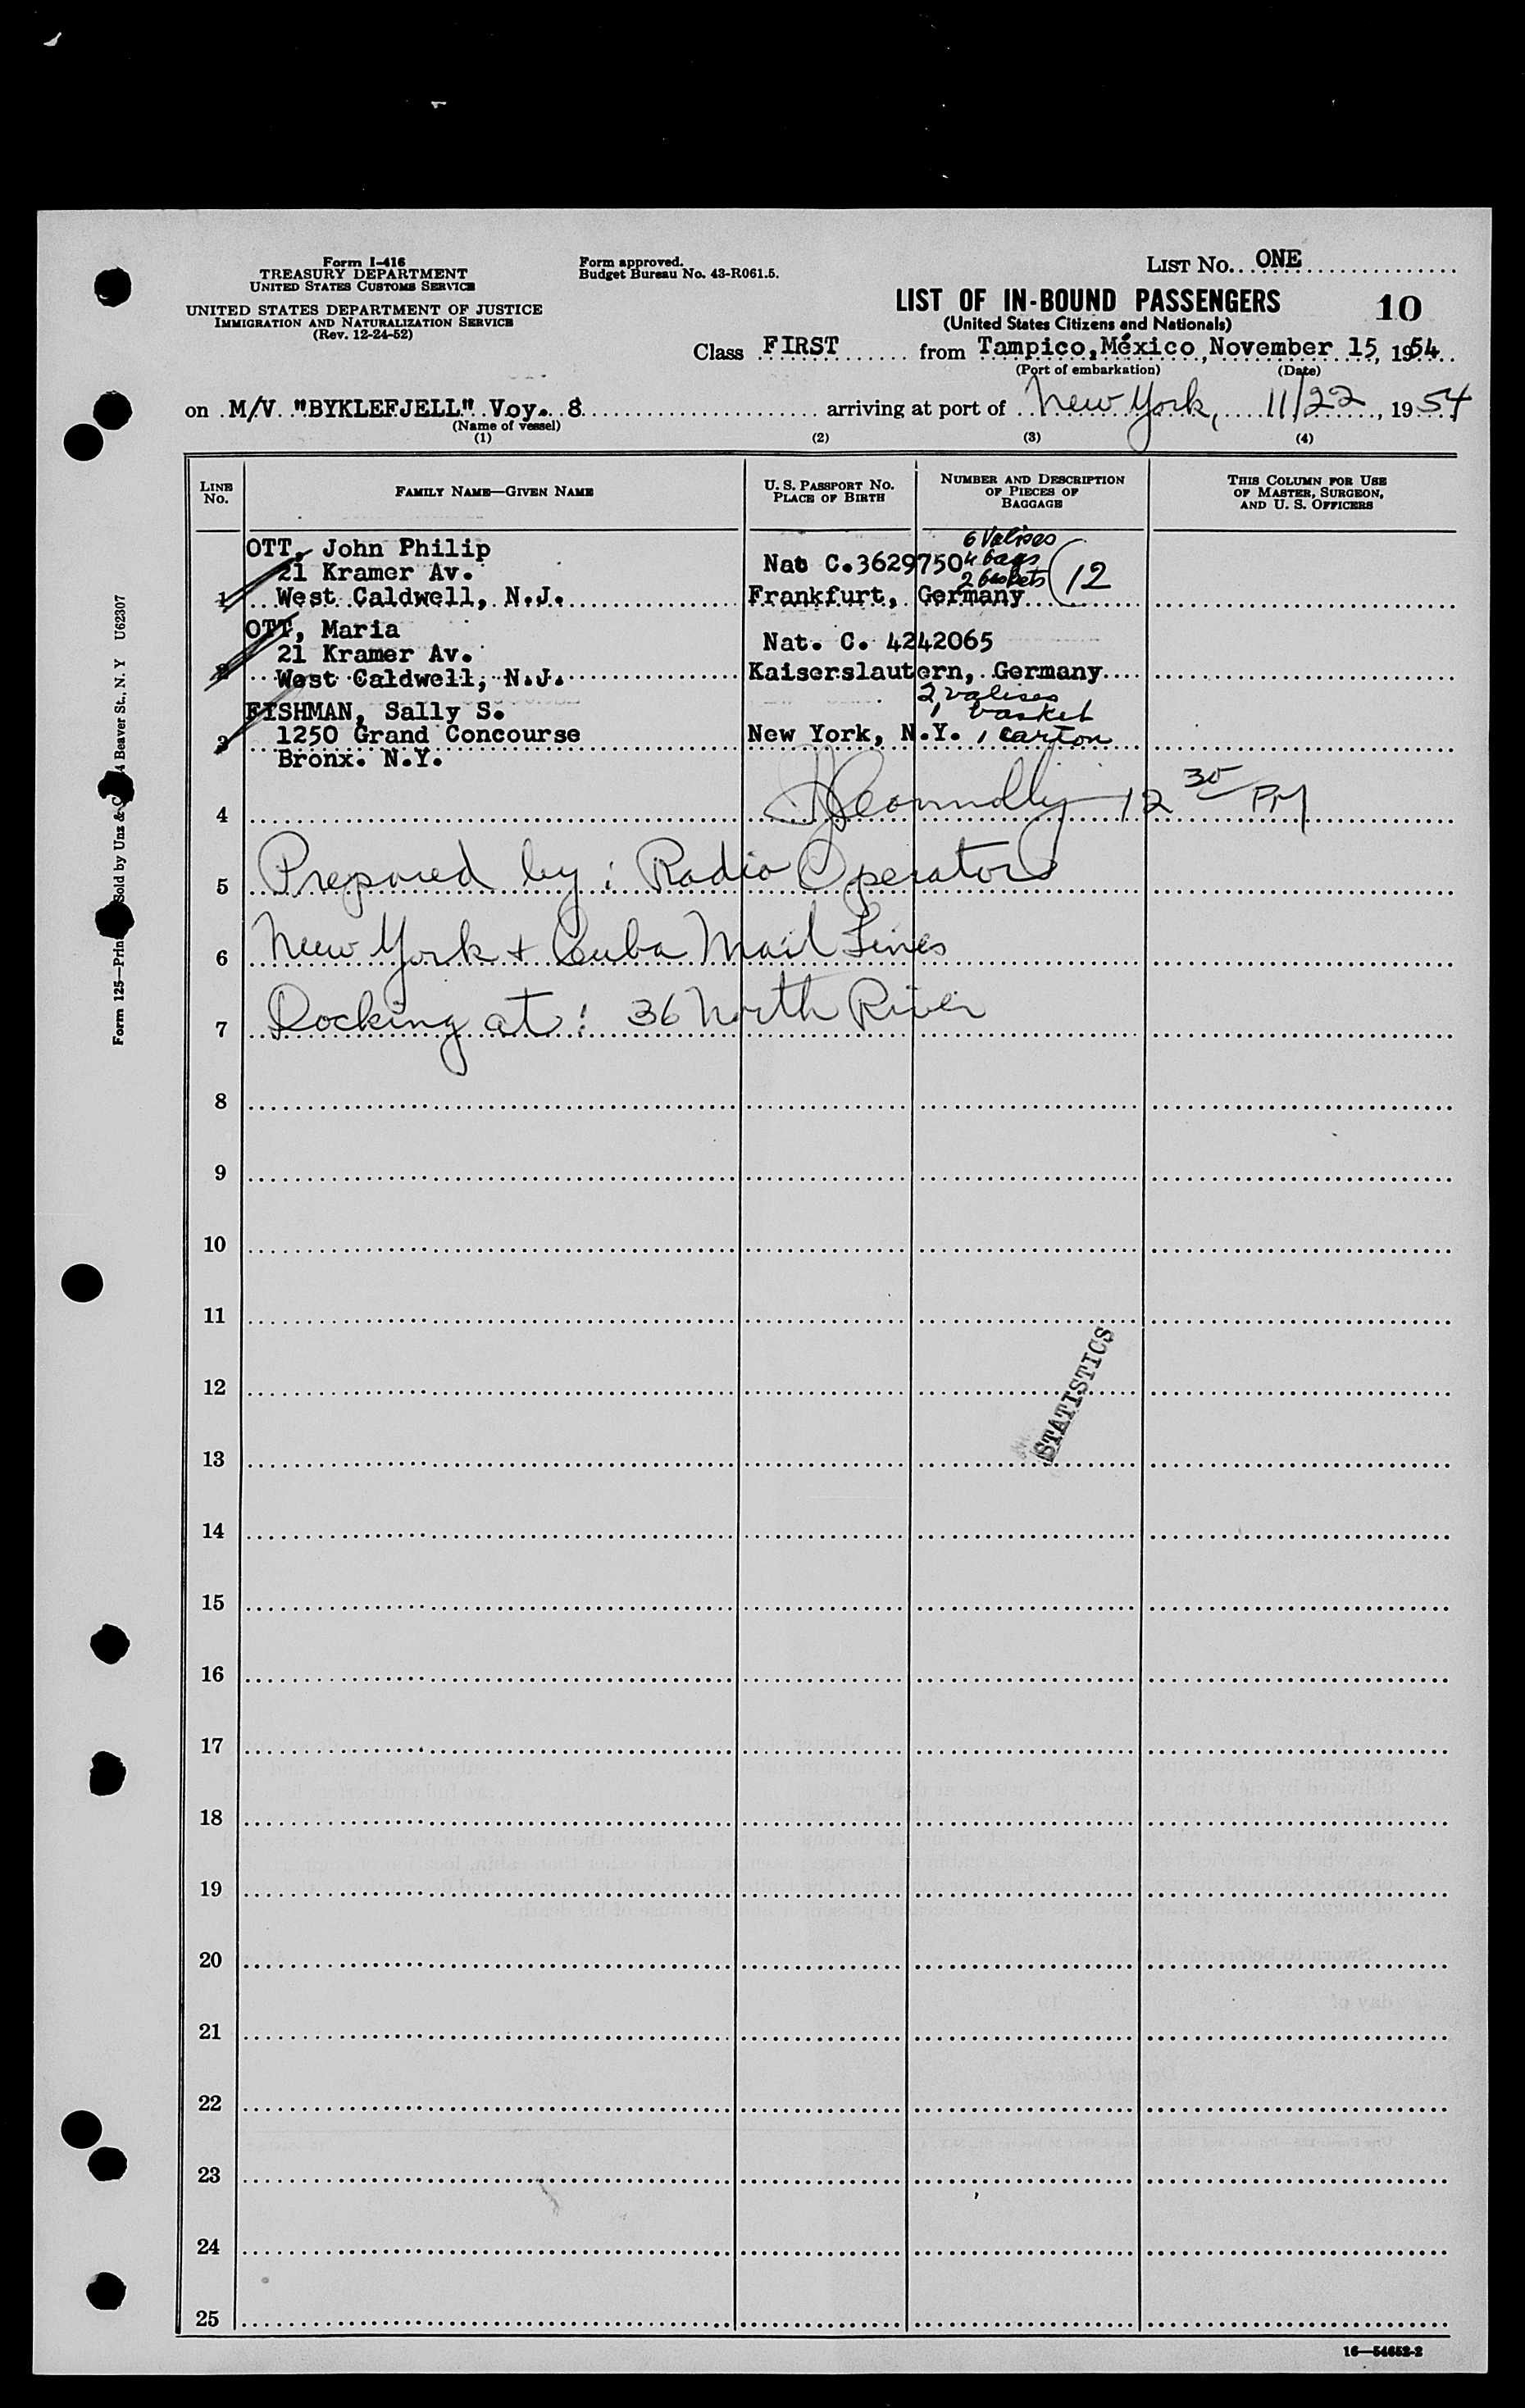 Form I-416
TREASURY DEPARTMENT
UNITED STATES CUSTOMS SERVICE
UNITED STATES DEPARTMENT OF JUSTICE
IMMIGRATION AND NATURALIZATION SERVICE
(Rev. 12-24-52)
Form approved.
Budget Bureau No. 43-R061.5.
LIST NO. ONE
LIST OF IN-BOUND PASSENGERS 10
(United States Citizens and Nationals)
Class FIRST from Tampico, México, November 15, 1954
(Port of embarkation) (Date)
on M/V "BYKLEFJELL" Voy. 8 arriving at port of New York, 11/22, 1954
(Name of vessel)
(1) (2) (3) (4)
LINE NO.
FAMILY NAME—GIVEN NAME
U. S. PASSPORT NO.
PLACE OF BIRTH
NUMBER AND DESCRIPTION
OF PIECES OF
BAGGAGE
THIS COLUMN FOR USE
OF MASTER, SURGEON,
AND U. S. OFFICERS
OTT, John Philip 6 Valises
21 Kramer Av. Nat C.3629750 4 bags
1 West Caldwell, N.J. Frankfurt, Germany 2 baskets (12
OTT, Maria
21 Kramer Av. Nat. C. 4242065
2 West Caldwell, N.J. Kaiserslautern, Germany
FISHMAN, Sally S. 2 valises
1 basket
3 1250 Grand Concourse New York, N.Y. 1 carton
Bronx. N.Y.
4 Connolly 12 30 PM
5 Prepared by: Radio Operator
6 New York + Cuba Mail Lines
7 Docking at: 36 North River
8
9
10
11
12
STATISTICS
13
14
15
16
17
18
19
20
21
22
23
24
25
16—54652-2
Form 125—Prin
Sold by Unz & C
4 Beaver St., N. Y U62307